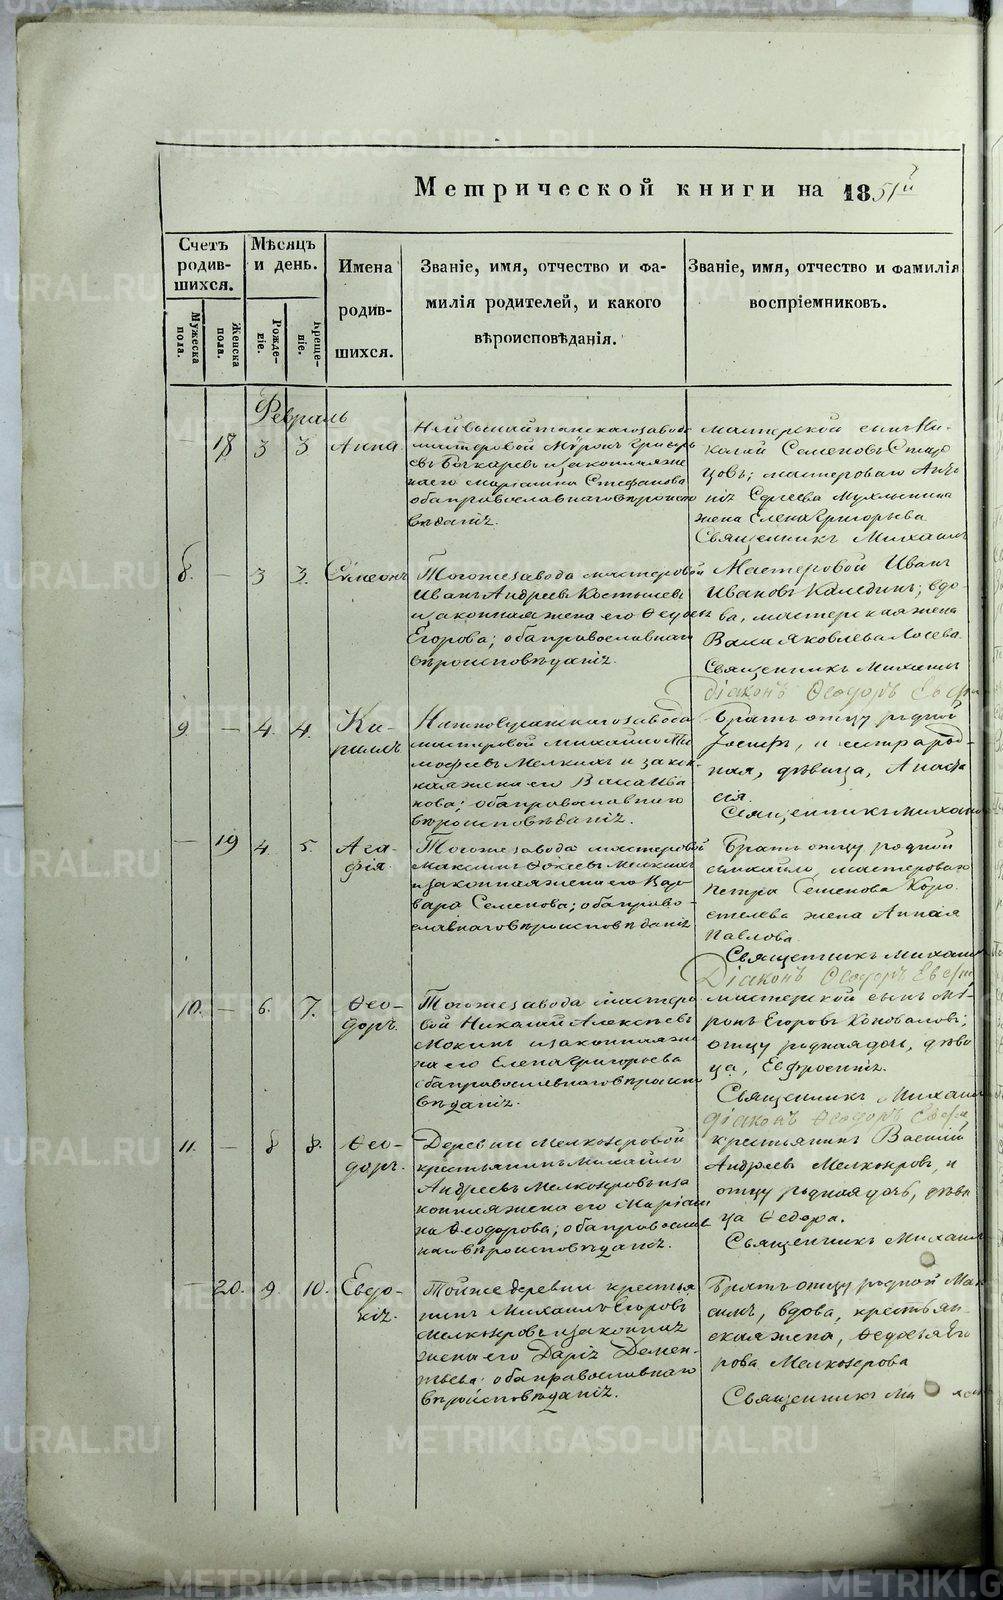 METRIKI.GASO-URAL.RU
Метрической книги на 1851й
Счетъ родив-шихся.
Мужеска пола.
Женска пола.
Мѣсяцъ и день.
Рожде-ніе.
Креще-ніе.
Имена
родив-
шихся.
Званіе, имя, отчество и фа-
милія родителей, и какого
вѣроисповѣданія.
Званіе, имя, отчество и фамилія
воспріемниковъ.
Февраль
— 18 3 3 Анна
мастеровой Мѵронъ Григорь
евъ Бочкаревъ и законная же
на его Маріанна Стефанова
оба православнаго вѣроиспо
вѣданія.
мастерской сынъ Ни-
колай Семеновъ
цовъ; мастероваго
Сергеева
жена Елена Григорьева
Священникъ Михаилъ
8. — 3 3. Сѵмеонъ
Тогоже завода мастеровой
Иванъ Андреевъ Костылевъ
и законная жена его
Егорова; оба православнаго
вѣроисповѣданія.
Мастеровой Иванъ
Ивановъ Калединъ; вдо-
ва, мастерская жена
Васса Яковлева Лосева
Священникъ Михаилъ
Діаконъ Ѳеодоръ
9 — 4. 4. Ки-
риллъ
завода
мастеровой Михайло Ти
мофеевъ Мелкихъ и закон
ная жена его Васса Ива
нова; оба православнаго
вѣроисповѣданія.
Братъ отцу родной
Іосифъ, и сестра род-
ная, дѣвица, Анаста
сія.
Священникъ Михаилъ
— 19 4. 5. Ага-
фія.
Тогоже завода мастеровой
Максимъ Мелкихъ
и законная жена его Вар
вара Семенова; оба право
славнаго вѣроисповѣданія
Братъ отцу родной
Михайло, мастероваго
Петра Семенова Коро
стелева жена Анна
Павлова.
Священникъ Михаилъ
Діаконъ Ѳеодоръ
10. — 6. 7. Ѳео-
доръ.
Тогоже завода мастеро
вой Николай Алексѣевъ
Мокинъ и законная же
на его Елена Григорьева
оба православнаго вѣроиспо
вѣданія.
мастерской сынъ Мѵ-
ронъ Егоровъ Коноваловъ;
отцу родная дочь, дѣви
ца, Евфросинія.
Священникъ Михаилъ
Діаконъ Ѳеодоръ
11. — 8 8. Ѳео-
доръ.
Деревни Мелкозеровой
крестьянинъ Михайло
Андреевъ Мелкозеровъ и за
конная жена его Маріан
на Ѳеодорова; оба православ
наго вѣроисповѣданія.
крестьянинъ Василій
Андреевъ Мелкозеровъ, и
отцу родная дочь, дѣви
ца Ѳедора.
Священникъ Михаилъ
— 20. 9. 10. Евдо-
кія.
Тойже деревни крестья
нинъ Михаилъ Егоровъ
Мелкозеровъ и законная
жена его Дарія Демен-
тьева; оба православнаго
вѣроисповѣданія.
Братъ отцу родной Мак
симъ, вдова, крестьян-
ская жена, Ѳедосья Его
рова Мелкозерова
Священникъ